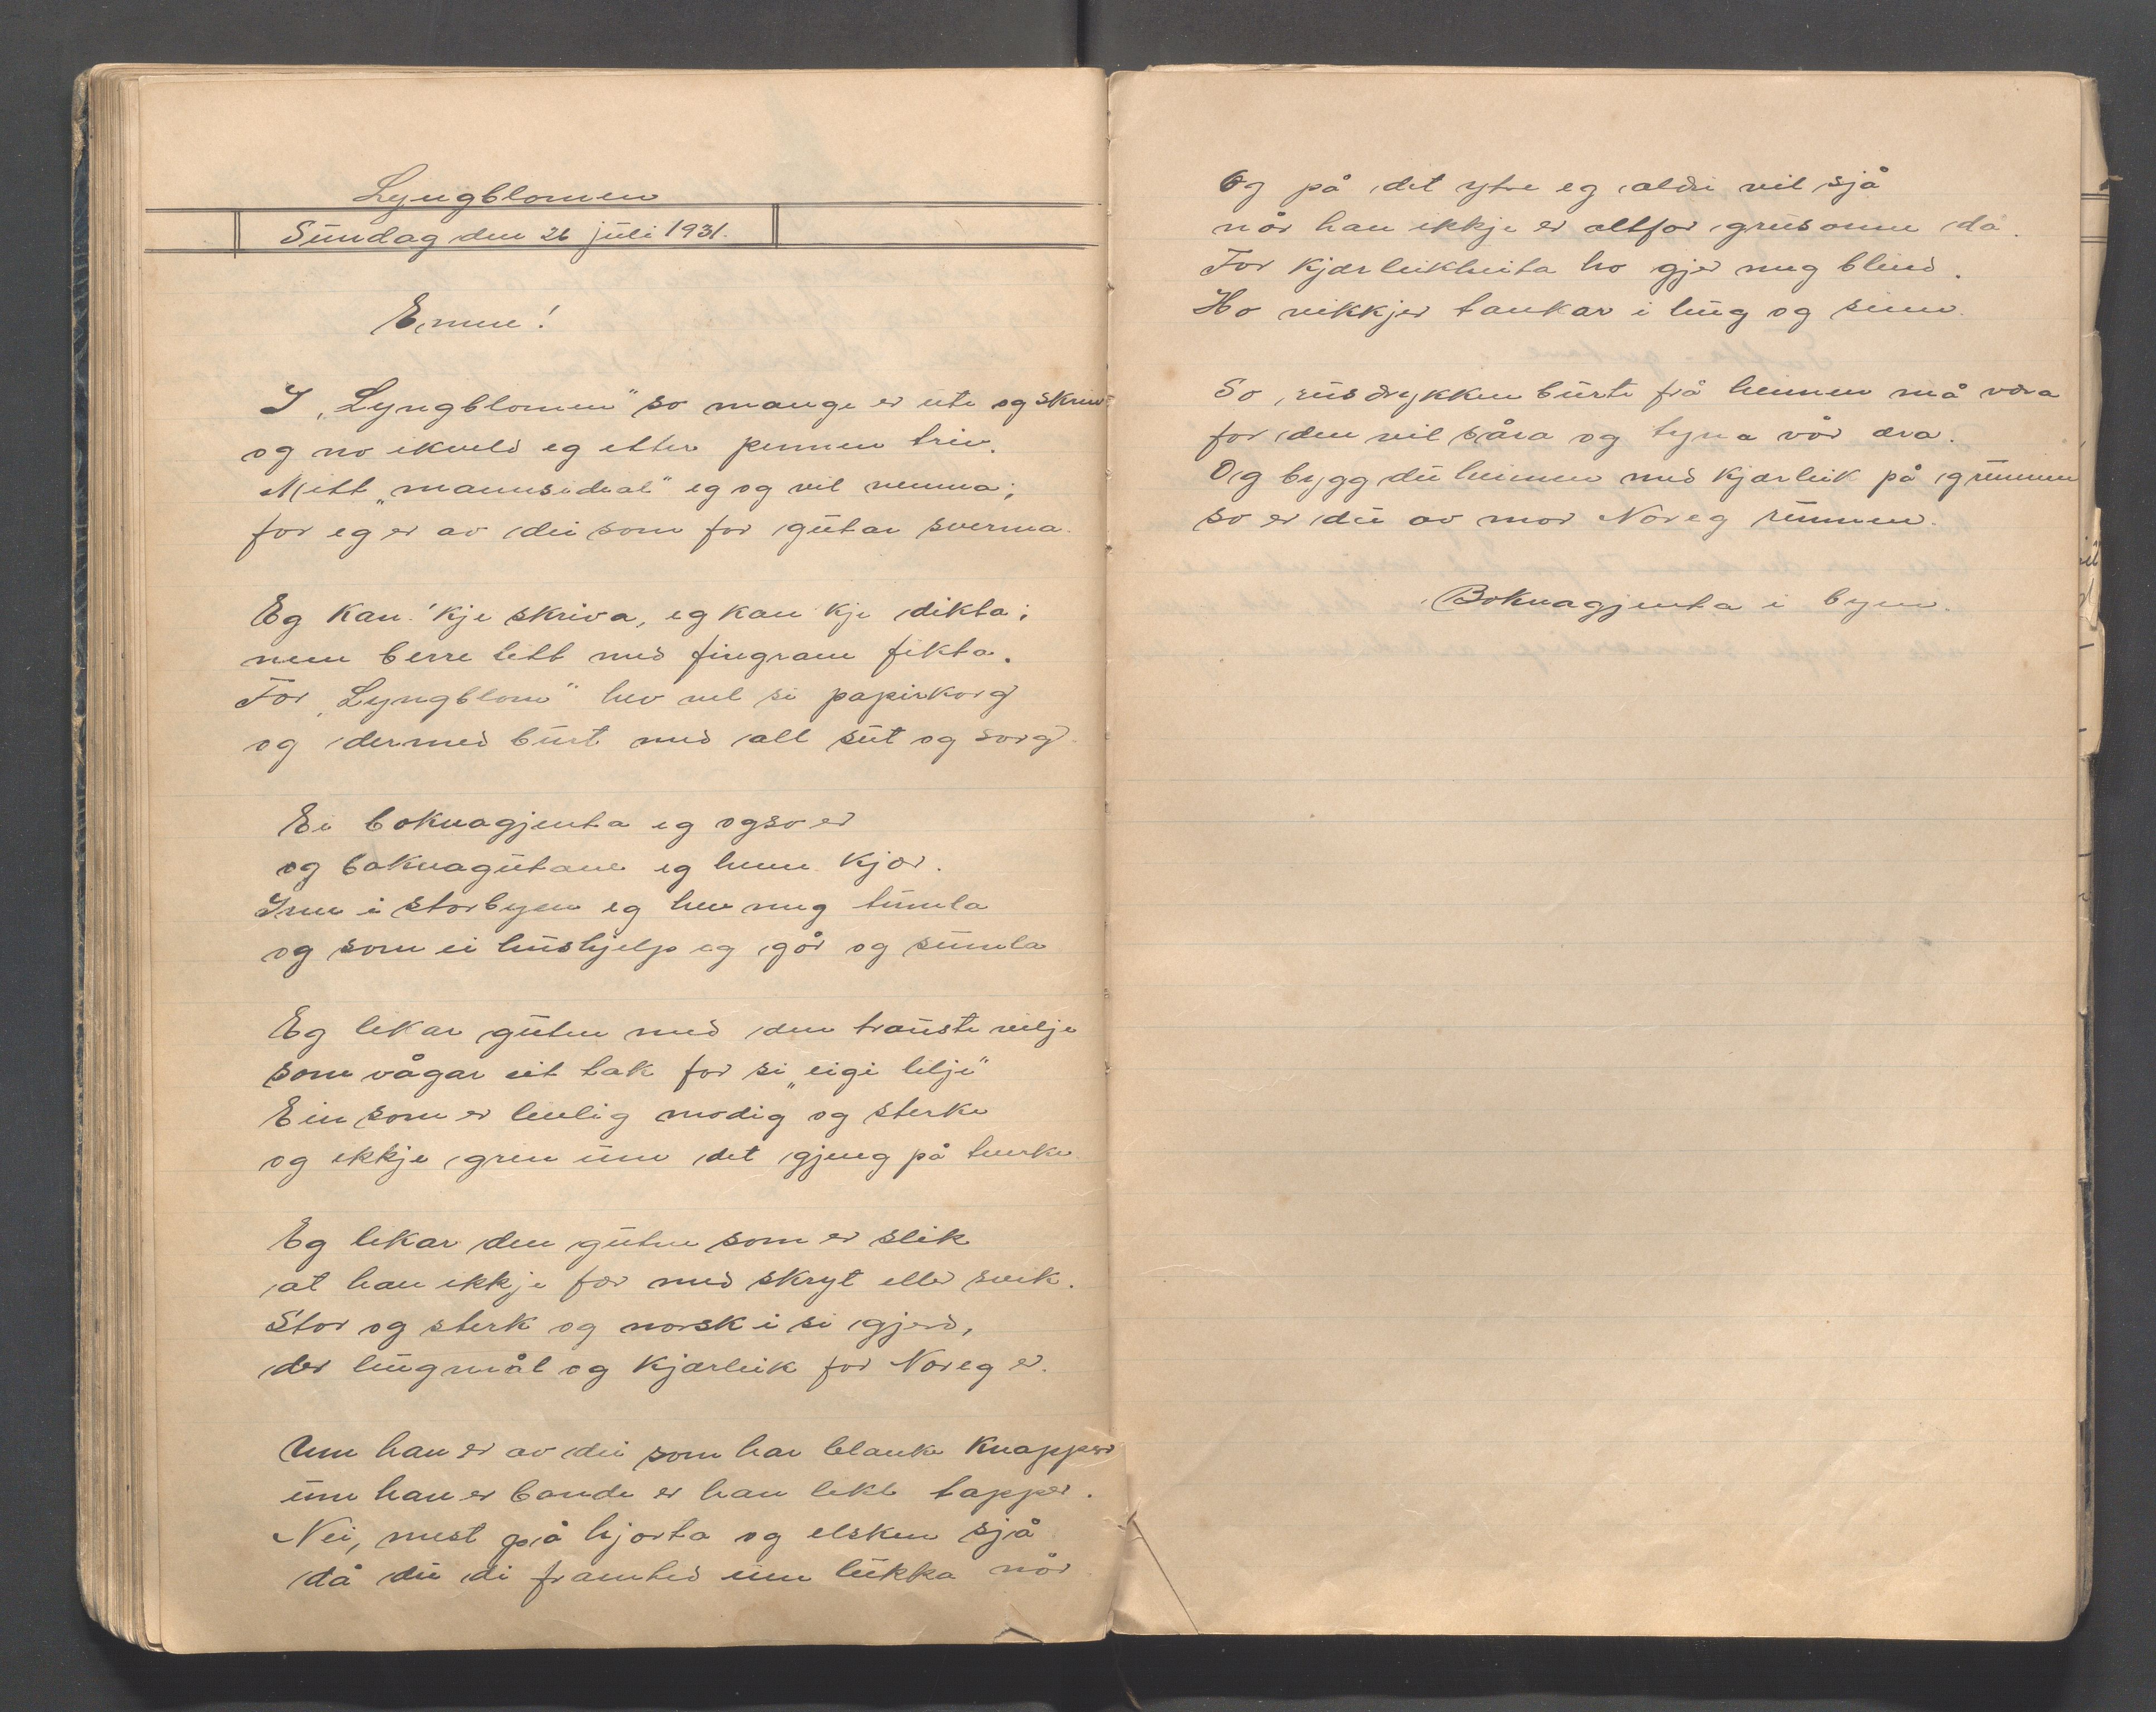 Lyngblomen
Sundag den 26 juli 1931.
Emne!
I „Lyngblomen" so mange er ute og skriv
og no ikveld eg etter pennen triv.
Mitt „mannsideal" eg og vil nemna;
for eg er av dei som for gutar sverma.
Eg kan 'kje skriva, eg kan kje dikta;
nem berre litt med fingrane fikta.
For „Lyngblom" hev vel si papirkorg
og dermed burt med all sut og sorg.
Ei boknagjenta eg ogso er
og boknagutane eg hev kjær.
Inn i storbyen eg hev meg tumla
og som ei hushjelp eg går og sumla
Eg likar guten med den trauste vilje
som vågar eit tak for si „eigi lilje"
Ein som er livlig modig og sterke
og ikkje gren um det gjeng på tverke
Eg likar den guten som er slik
at han ikkje fær med skryt eller svik.
Stor og sterk og norsk i si gjerd,
der hugmål og kjærleik for Noreg er.
Um han er av dei som har blanke knapper
um han er bonde er han likt tapper.
Nei, mest på hjarta og elsken sjå
då du di framtid um lukka når
Og på det ytre eg aldri vil sjå
når han ikkje er altfor grusomme då.
For kjærleikheita ho gjer meg blind.
Ho vikkjer tankar i hug og sinn.
So rusdrykken burte frå heimen må vera
for den vil såra og tyna vår æra.
Og bygg du heimen med kjærleik på grunnen
so er du av mor Noreg runnen.
Boknagjenta i byen.